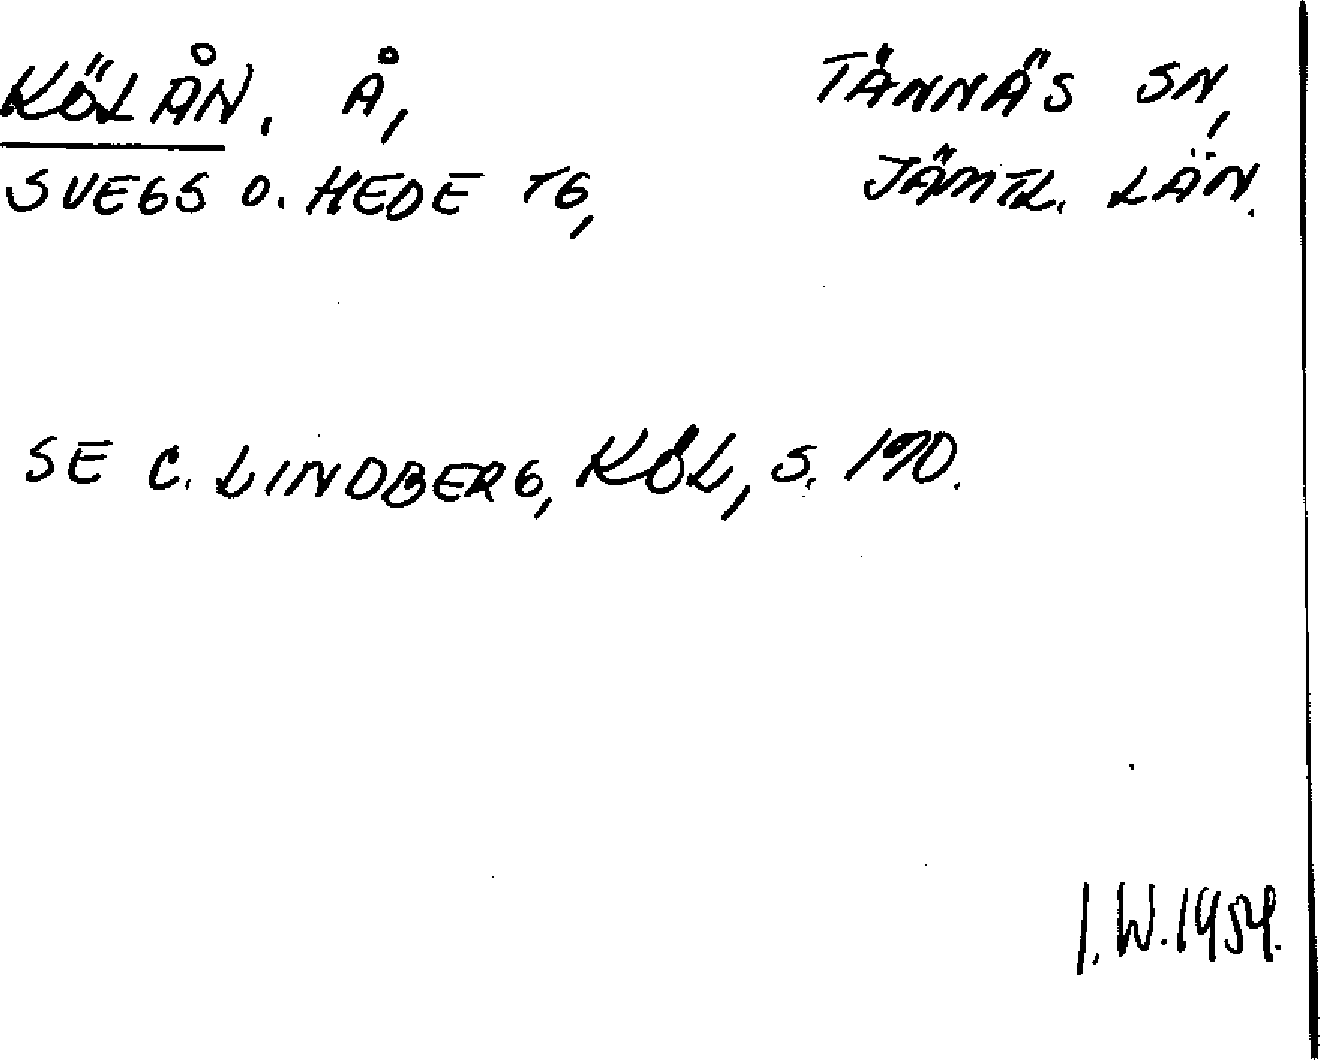 KÖLÅN. Å,
TÄNNÄS SN,
SVEGS O. HEDE TG,
JÄMTL. LÄN.
SE C. LINDBERG, KÖL, S. 190.
I. W. 1959.